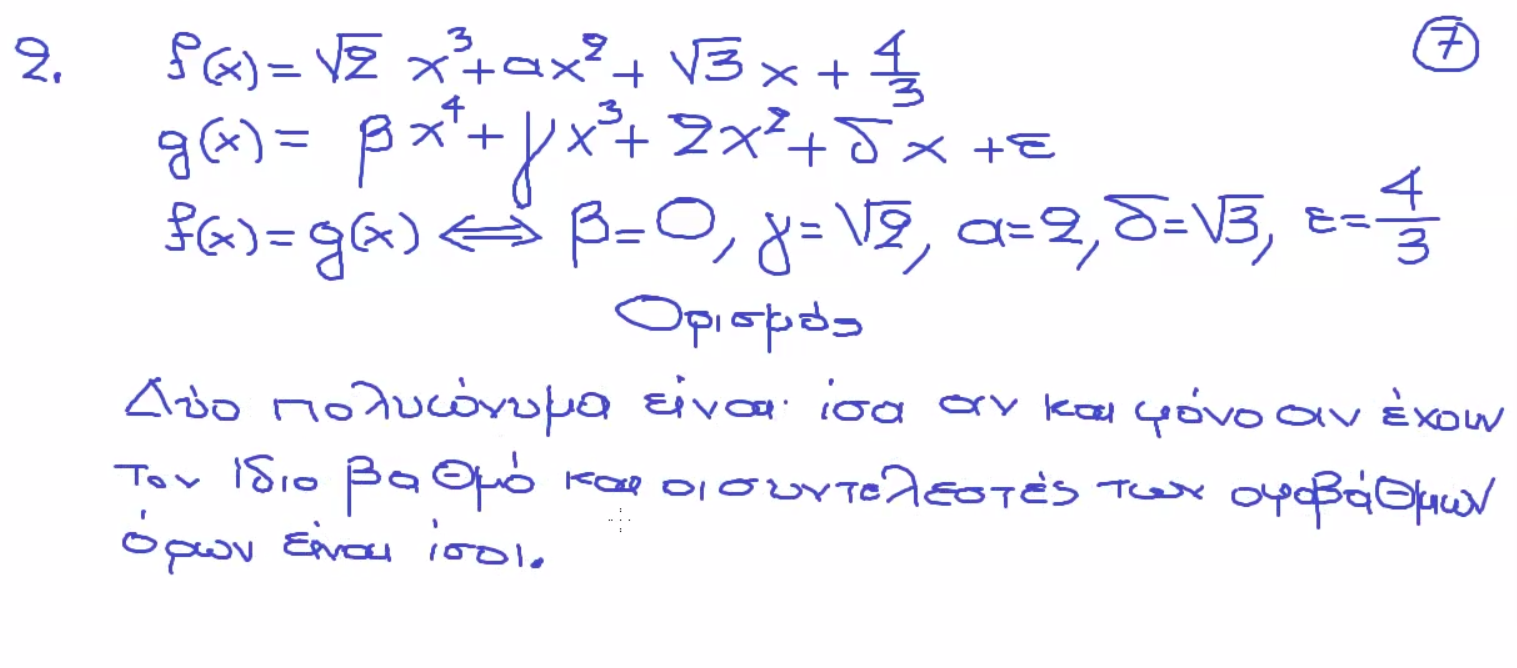 2. f(x) = √2 x³ + αx² + √3 x + 4/3 ⑦
g(x) = βx⁴ + γx³ + 2x² + δx + ε
f(x) = g(x) ⟺ β=0, γ=√2, α=2, δ=√3, ε=4/3
Ορισμός
Δύο πολυώνυμα είναι ίσα αν και μόνο αν έχουν
τον ίδιο βαθμό και οι συντελεστές των ομοβάθμιων
όρων είναι ίσοι.